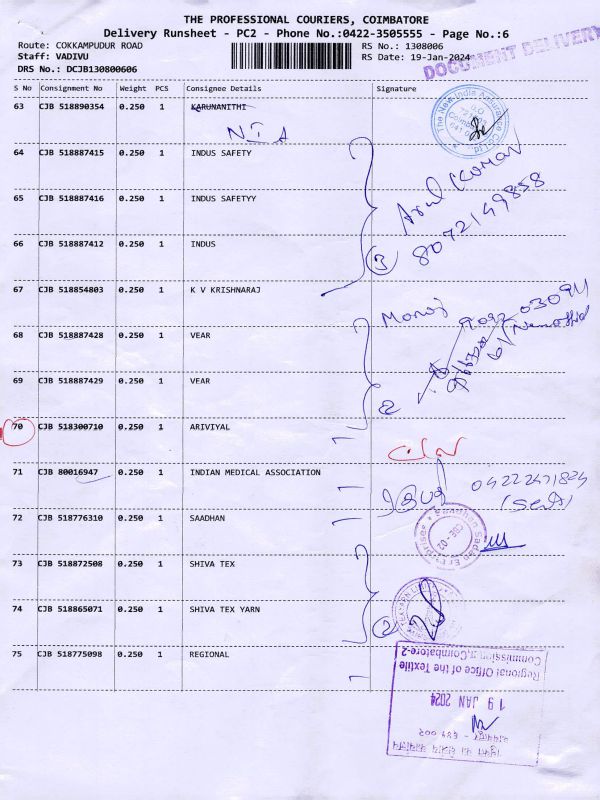 THE PROFESSIONAL COURIERS, COIMBATORE
Delivery Runsheet - PC2 - Phone No.:0422-3505555 - Page No.:6
Route: COKKAMPUDUR ROAD RS No.: 1308006
Staff: VADIVU RS Date: 19-Jan-2024
DOCUMENT DELIVERY
DRS No.: DCJB130800606
S No Consignment No Weight PCS Consignee Details Signature
63 CJB 518890354 0.250 1 KARUNANITHI
NIA
The New India Assurance Co. Ltd.
64 CJB 518887415 0.250 1 INDUS SAFETY
Arul Kumar
65 CJB 518887416 0.250 1 INDUS SAFETYY
8072149858
66 CJB 518887412 0.250 1 INDUS
3
67 CJB 518854803 0.250 1 K V KRISHNARAJ
Manoj
68 CJB 518887428 0.250 1 VEAR
69 CJB 518887429 0.250 1 VEAR
2
70 CJB 518300710 0.250 1 ARIVIYAL
71 CJB 80016947 0.250 1 INDIAN MEDICAL ASSOCIATION
04222471824
72 CJB 518776310 0.250 1 SAADHAN
CBE-02
73 CJB 518872508 0.250 1 SHIVA TEX
74 CJB 518865071 0.250 1 SHIVA TEX YARN
2
75 CJB 518775098 0.250 1 REGIONAL
Regional Office of the Textile
Commissioner, Coimbatore-2
19 JAN 2024